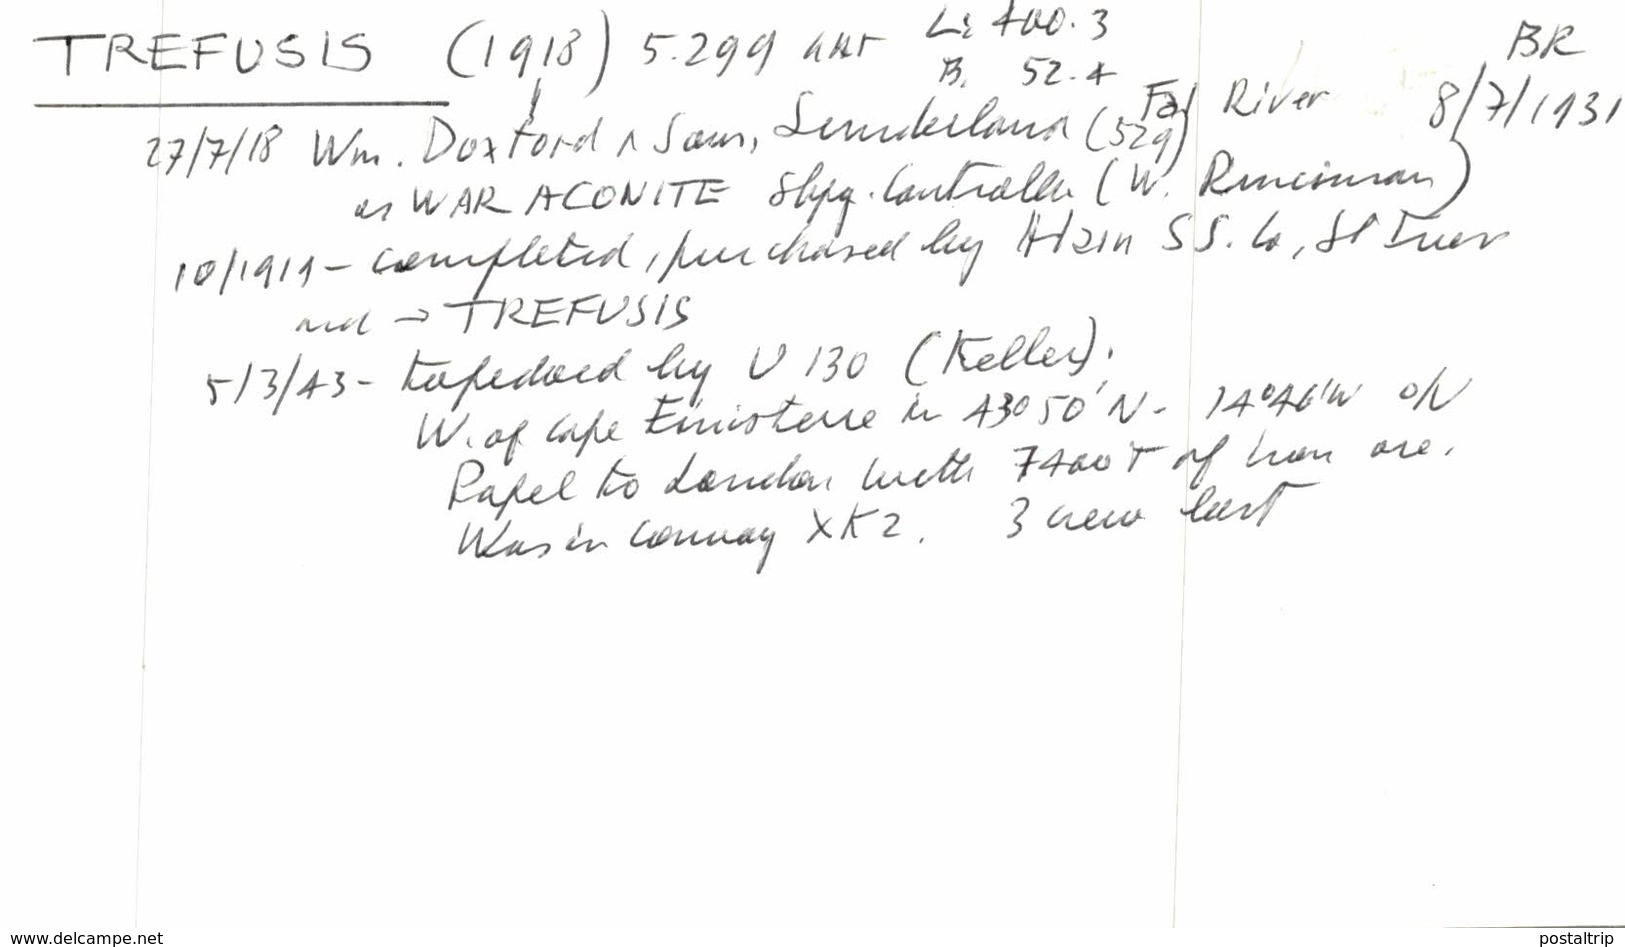 TREFUSIS (1918) 5.299 GRT L: 400.3 BR
B. 52.4 Fal River 8/7/1931
27/7/18 Wm. Doxford & Sons, Sunderland (529)
as WAR ACONITE Shpg. Controller (W. Runciman)
10/1919 - completed, purchased by Hain SS. Co, St Ives
and → TREFUSIS
5/3/43 - torpedoed by U 130 (Keller).
W. of Cape Finisterre in 43°50'N - 14°46'W o/v
Pepel to London with 7400 T of iron ore.
Was in convoy XK2. 3 crew lost
www.delcampe.net postaltrip